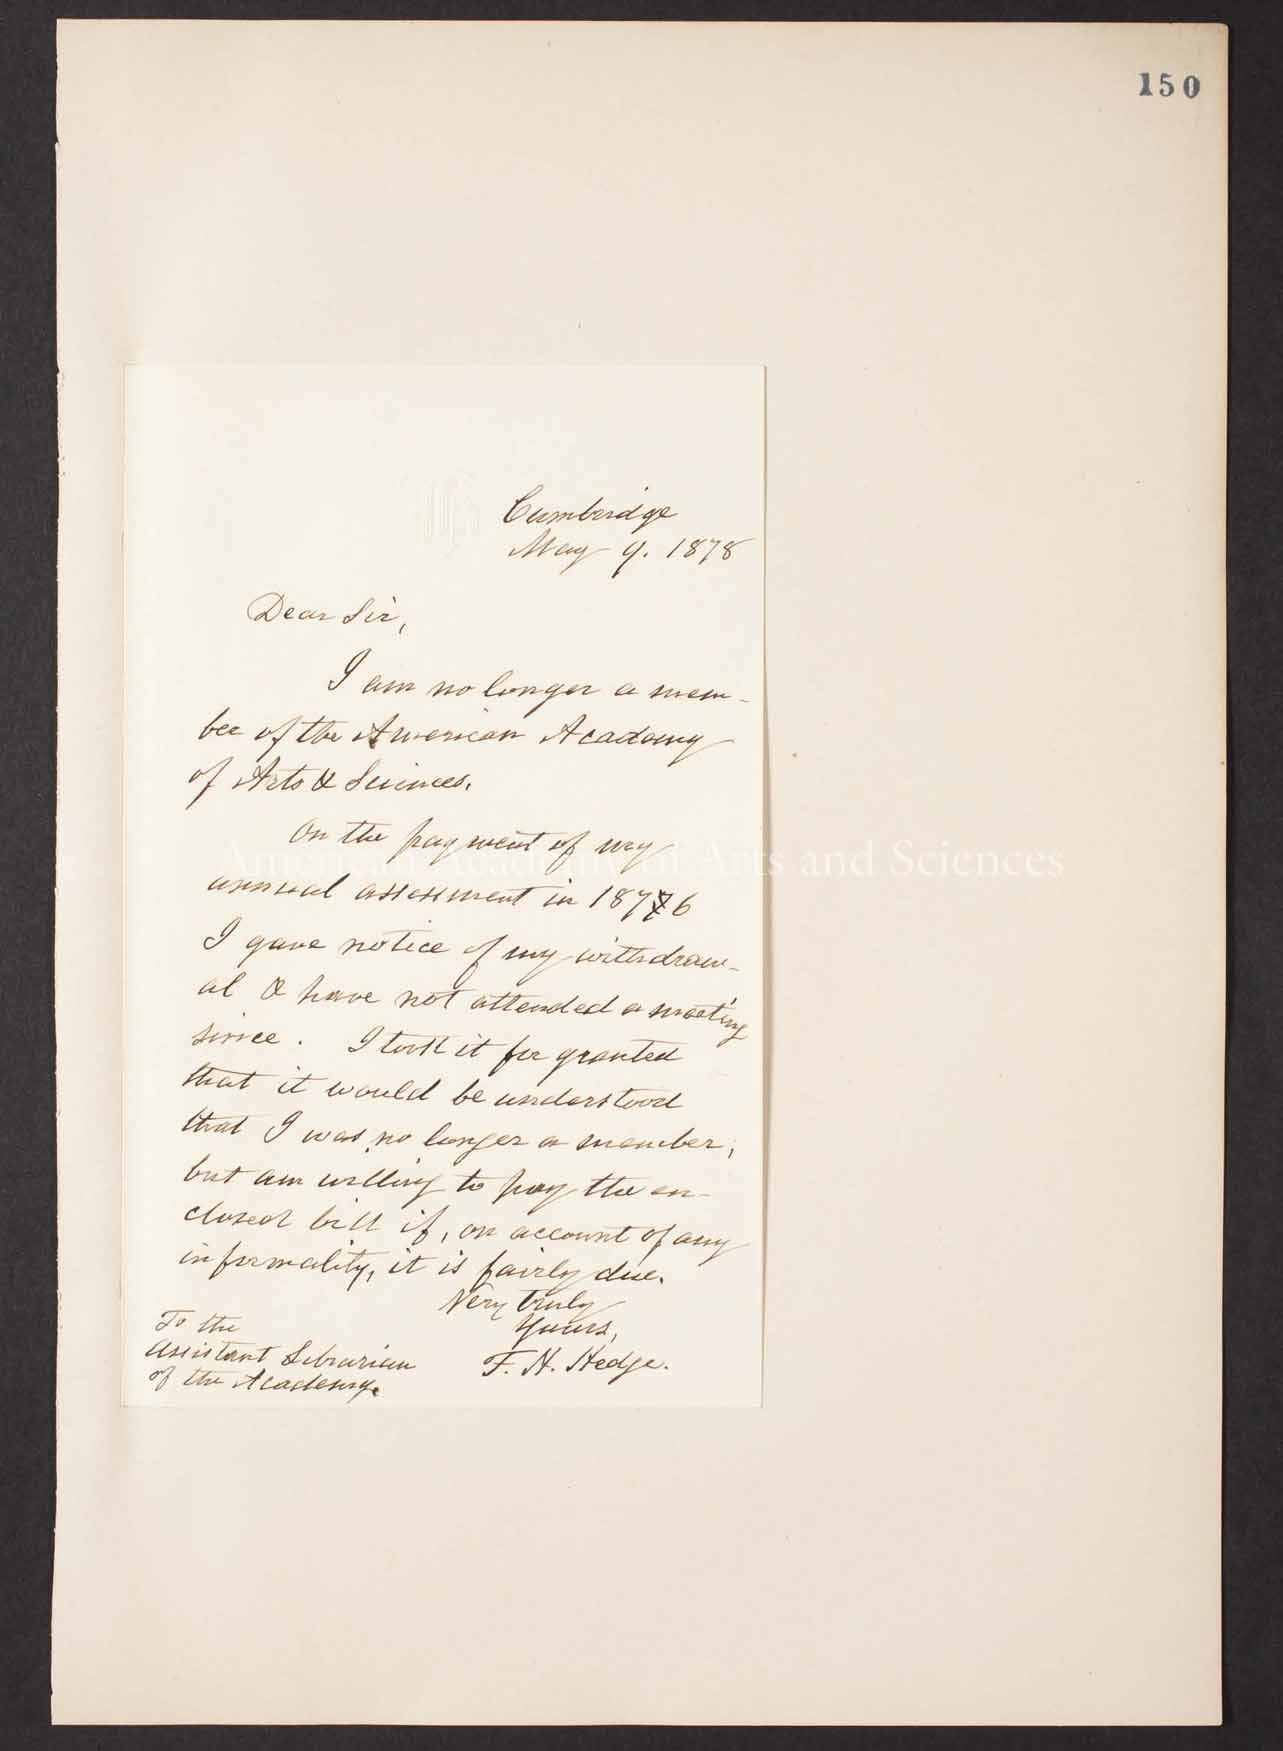 150
Cambridge
May 9. 1878
Dear Sir,
I am no longer a mem-
ber of the American Academy
of Arts & Sciences.
On the payment of my
American Academy of Arts and Sciences
annual assessment in 1876
I gave notice of my withdraw-
al & have not attended a meeting
since. I took it for granted
that it would be understood
that I was no longer a member;
but am willing to pay the en-
closed bill if, on account of any
informality, it is fairly due.
Very truly
Yours,
F. H. Hedge.
To the
Assistant Librarian
of the Academy.